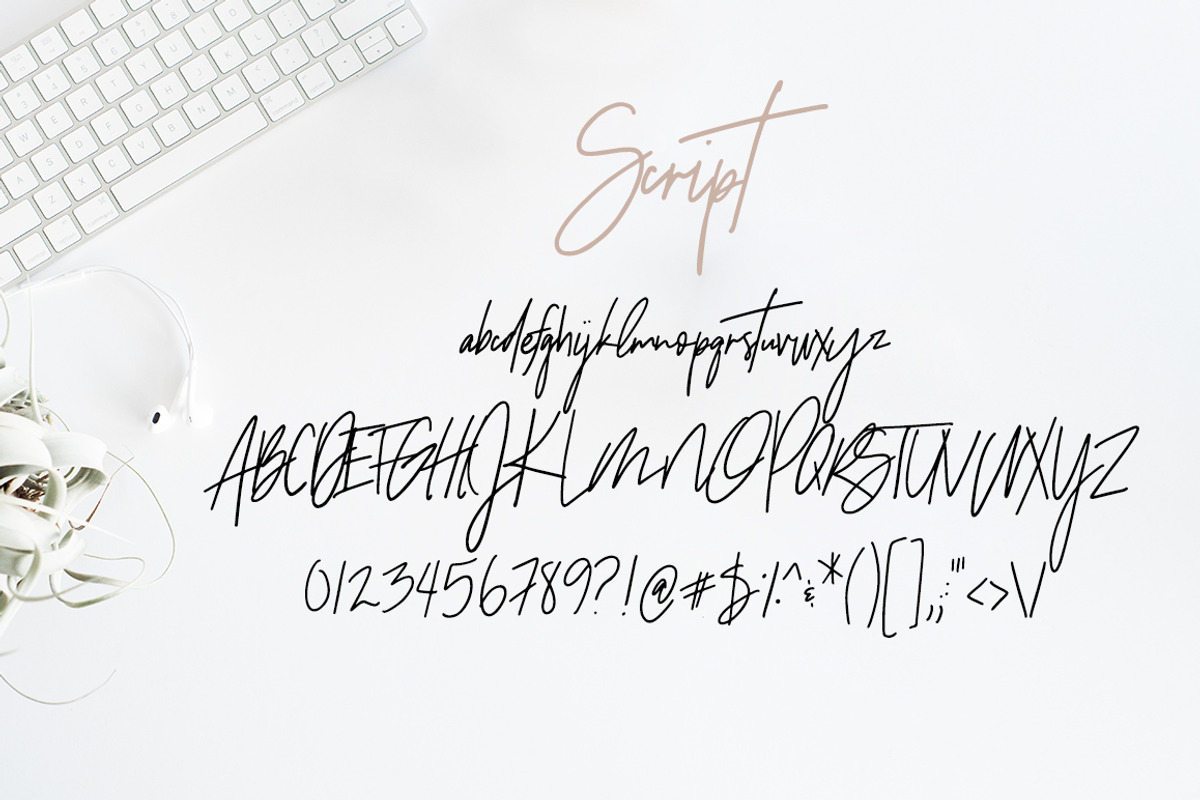 Script
abcdefghijklmnopqrstuvwxyz
ABCDEFGHIJKLMNOPQRSTUVWXYZ
0123456789?!@#$%^&*()[],;:"'<>\/